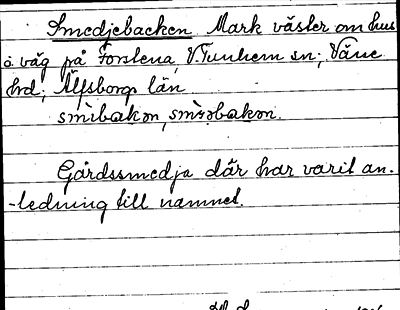 Smedjebacken Mark väster om hus
o väg på Forstena, V. Tunhem sn; Väne
hrd; Älfsborgs län
smibakən, smi̇əbakən.
Gårdssmedja där har varit an-
-ledning till namnet.